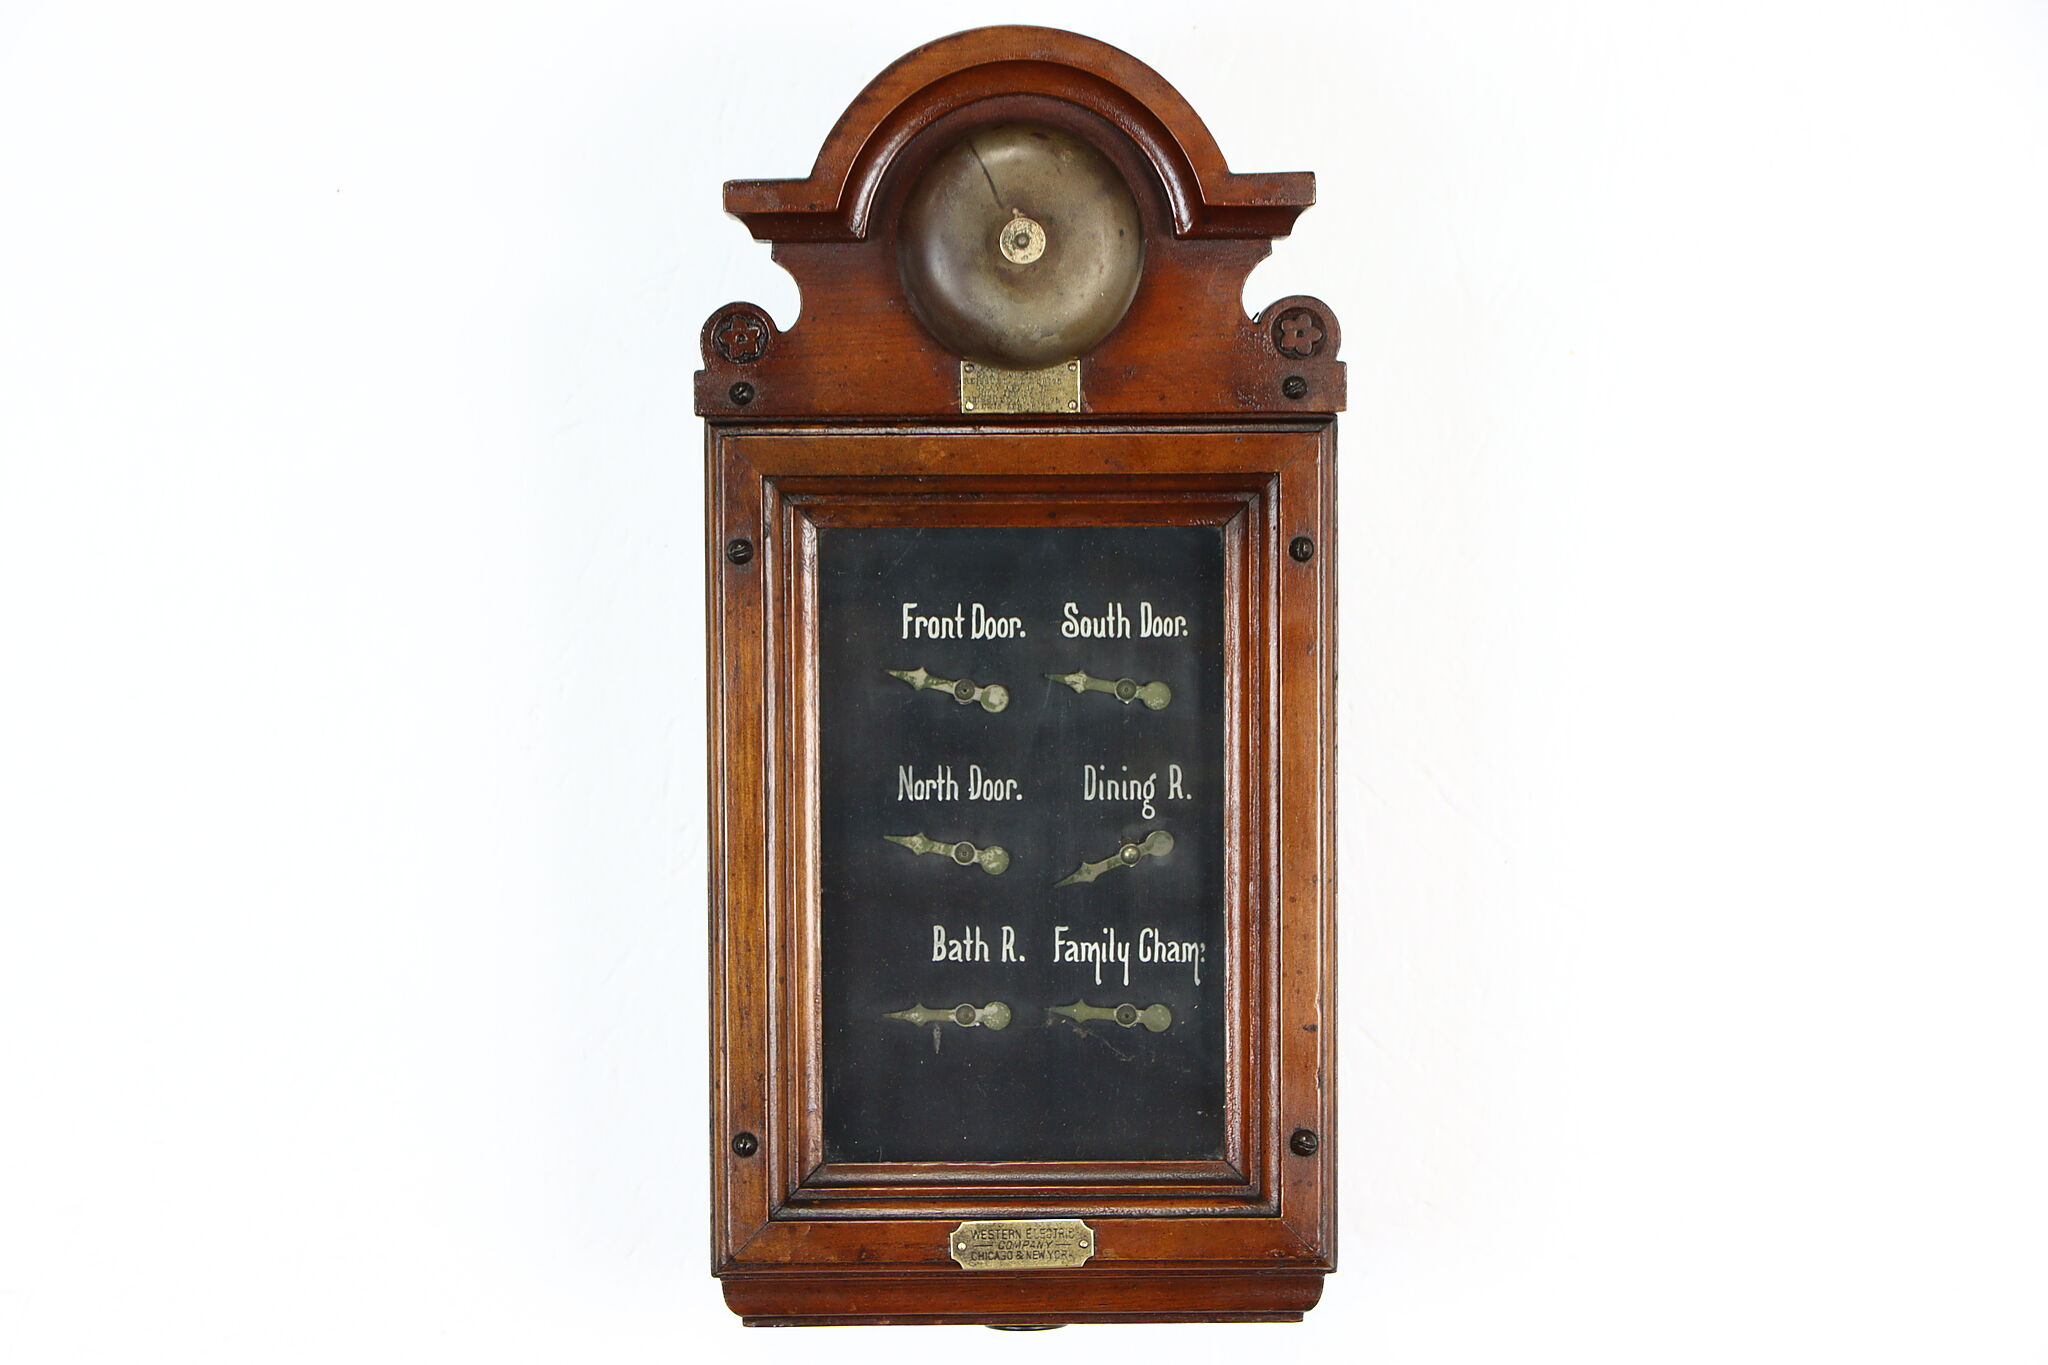 Front Door. South Door.
North Door. Dining R.
Bath R. Family Cham:
WESTERN ELECTRIC
COMPANY
CHICAGO & NEW YORK